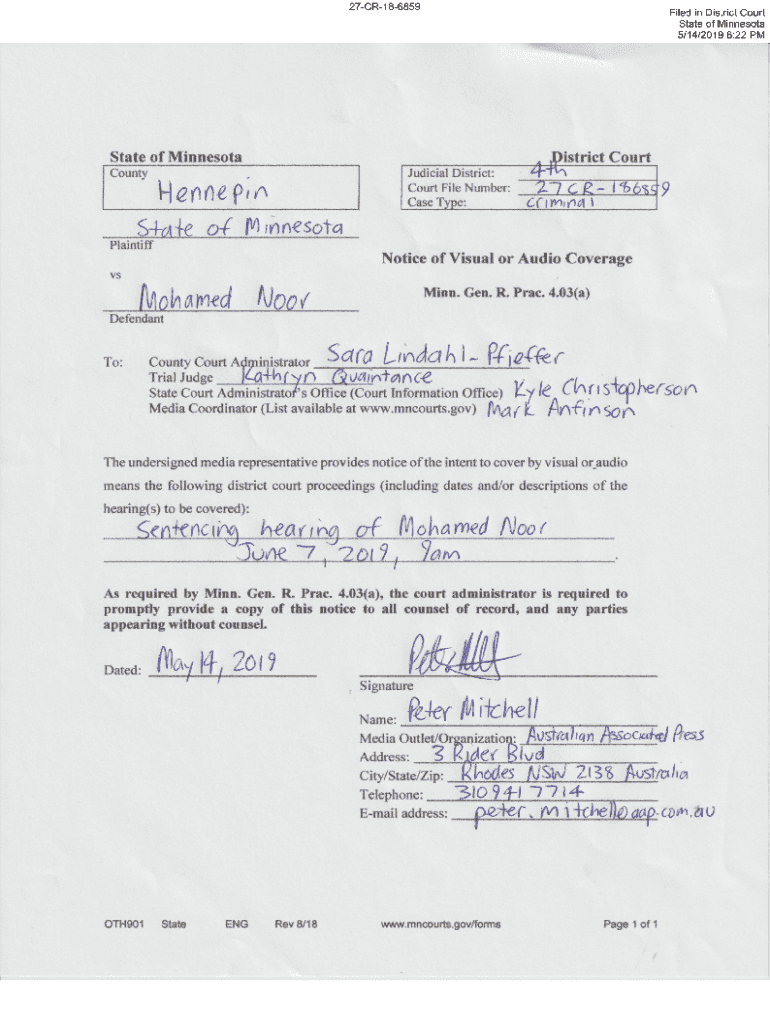 27-CR-18-6859
Filed in District Court
State of Minnesota
5/14/2019 6:22 PM
State of Minnesota
District Court
County
Hennepin
Judicial District: 4th
Court File Number: 27CR-186859
Case Type: Criminal
State of Minnesota
Plaintiff
Notice of Visual or Audio Coverage
vs
Mohamed Noor
Minn. Gen. R. Prac. 4.03(a)
Defendant
To: County Court Administrator Sara Lindahl-Pfieffer
Trial Judge Kathryn Quaintance
State Court Administrator's Office (Court Information Office) Kyle Christopherson
Media Coordinator (List available at www.mncourts.gov) Mark Anfinson
The undersigned media representative provides notice of the intent to cover by visual or audio
means the following district court proceedings (including dates and/or descriptions of the
hearing(s) to be covered):
Sentencing hearing of Mohamed Noor
June 7, 2019, 9am.
As required by Minn. Gen. R. Prac. 4.03(a), the court administrator is required to
promptly provide a copy of this notice to all counsel of record, and any parties
appearing without counsel.
Dated: May 14, 2019
Signature
Name: Peter Mitchell
Media Outlet/Organization: Australian Associated Press
Address: 3 Rider Blvd
City/State/Zip: Rhodes NSW 2138 Australia
Telephone: 310 941 7714
E-mail address: peter.mitchell@aap.com.au
OTH901 State ENG Rev 8/18 www.mncourts.gov/forms Page 1 of 1